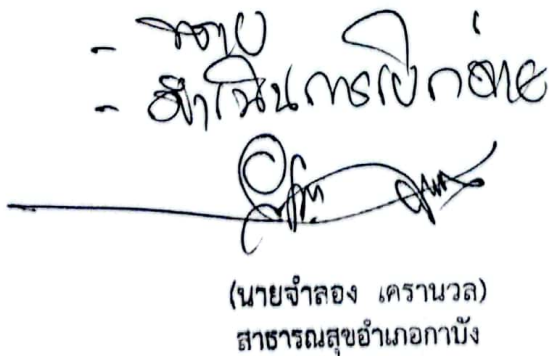 - ทราบ
- ดำเนินการเบิกจ่าย
(นายจำลอง เครานวล)
สาธารณสุขอำเภอกาบัง